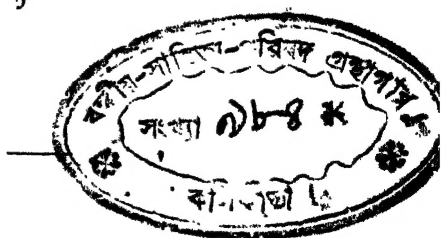 বঙ্গীয়-সাহিত্য-পরিষদ গ্রন্থাগার
সংখ্যা ৯৮৪
কলিকাতা